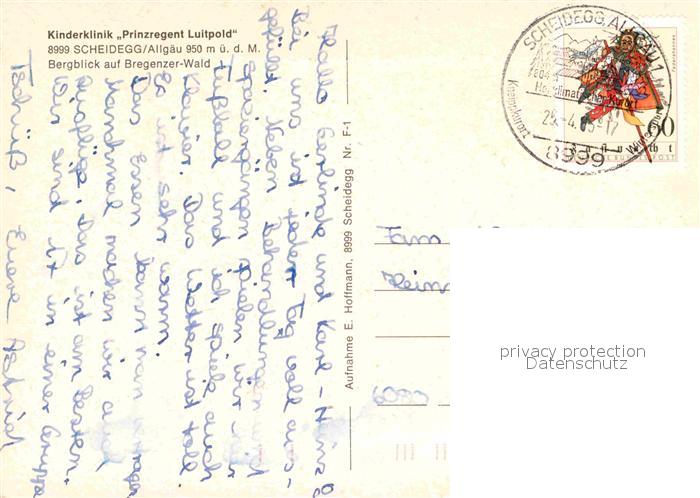 Kinderklinik „Prinzregent Luitpold"
8999 SCHEIDEGG/Allgäu 950 m ü. d. M.
Bergblick auf Bregenzer-Wald
Hallo Gerlinde und Karl-Heinz
Bei uns ist jeder Tag voll aus-
gefüllt. Neben Behandlungen und
Spaziergängen spielen wir
Fußball und ich spiele auch
Klavier. Das Wetter ist toll.
Es ist sehr warm.
Das Essen kann man
Manchmal machen wir auch
Ausflüge. Das ist am besten.
Wir sind in einer Gruppe
Tschüß, Eure Astrid
Aufnahme E. Hoffmann, 8999 Scheidegg Nr. F-1
SCHEIDEGG, ALLGÄU 1
Heilklimatischer Kurort
Kneippkurort
8999
60
Fam
Hein
privacy protection
Datenschutz